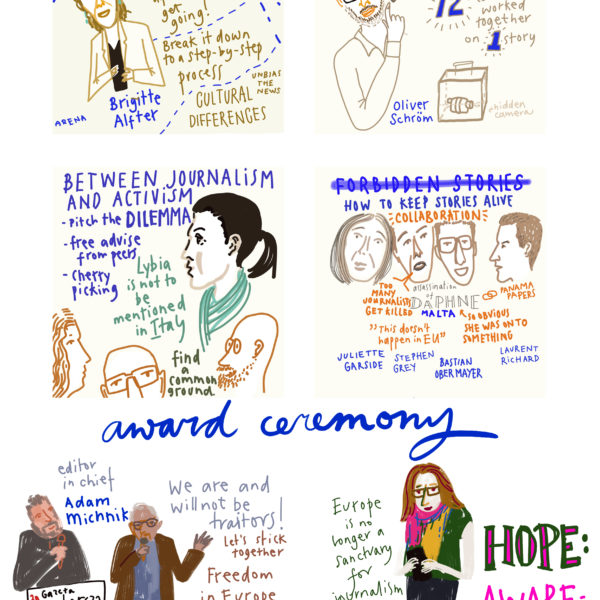 get
going!
Break it down
to a step-by-step
process
UNBIAS
THE
NEWS
Brigitte
Alfter
ARENA
CULTURAL
DIFFERENCES
12
worked
together
on
1 story
Oliver
Schröm
hidden
camera
BETWEEN JOURNALISM
AND ACTIVISM
- Pitch the DILEMMA
- free advise
from peers
- Cherry
picking
Lybia
is not to
be
mentioned
in Italy
find
a
common
ground
FORBIDDEN STORIES
HOW TO KEEP STORIES ALIVE
COLLABORATION
TOO
MANY
JOURNALISTS
GET KILLED
assassination
of
DAPHNE
MALTA
PANAMA
PAPERS
"This doesn't
happen in EU"
SO OBVIOUS
SHE WAS ON TO
SOMETHING
JULIETTE
GARSIDE
STEPHEN
GREY
BASTIAN
OBERMAYER
LAURENT
RICHARD
award ceremony
editor
in chief
Adam
Michnik
Gazeta
We are and
will not be
traitors!
Let's stick
together
Freedom
in Europe
Europe
is no
longer a
sanctuary
for
journalism
HOPE:
AWARE-